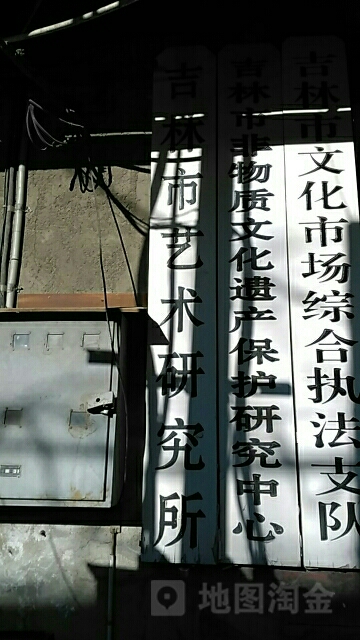 吉林市艺术研究所
吉林市非物质文化遗产保护研究中心
吉林市文化市场综合执法支队
地图淘金